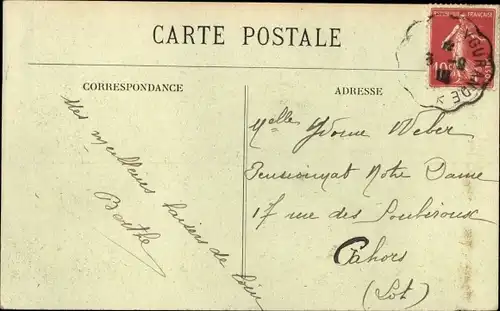 CARTE POSTALE
CORRESPONDANCE
ADRESSE
Mes meilleurs baisers de loin
Berthe
Melle Yvonne Weber
Pensionnat Notre Dame
17 rue des Soubirous
Cahors
(Lot)
REPUBLIQUE FRANÇAISE
10